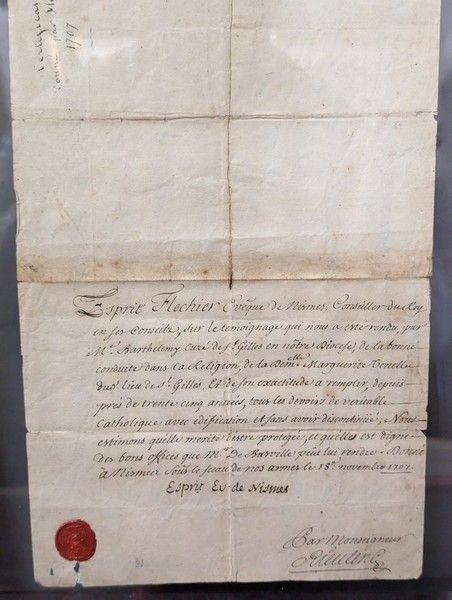 1707
Esprit Flechier Evêque de Nismes Conseiller du Roy
en ses Conseilz, sur le témoignage qui nous a eté rendu, par
Mr. Barthelemy curé de St. Gilles en nôtre Diocese, de la bonne
conduite dans la Religion, de la Demelle Marguerite Venelle
dud. lieu de St. Gilles, Et de son exactitude a remplir, depuis
prés de trente cinq années, tous les devoirs de veritable
Catholique avec édification et sans avoir discontinué, Nous
estimons qu'elle merite d'estre protegée, et qu'elles est digne
des bons offices que Mr. De Basville peut lui rendre. Donné
à Nismes sous le seau de nos armes le 18e. novembre 1707.
Esprit Ev. de Nismes
Par Monseigneur